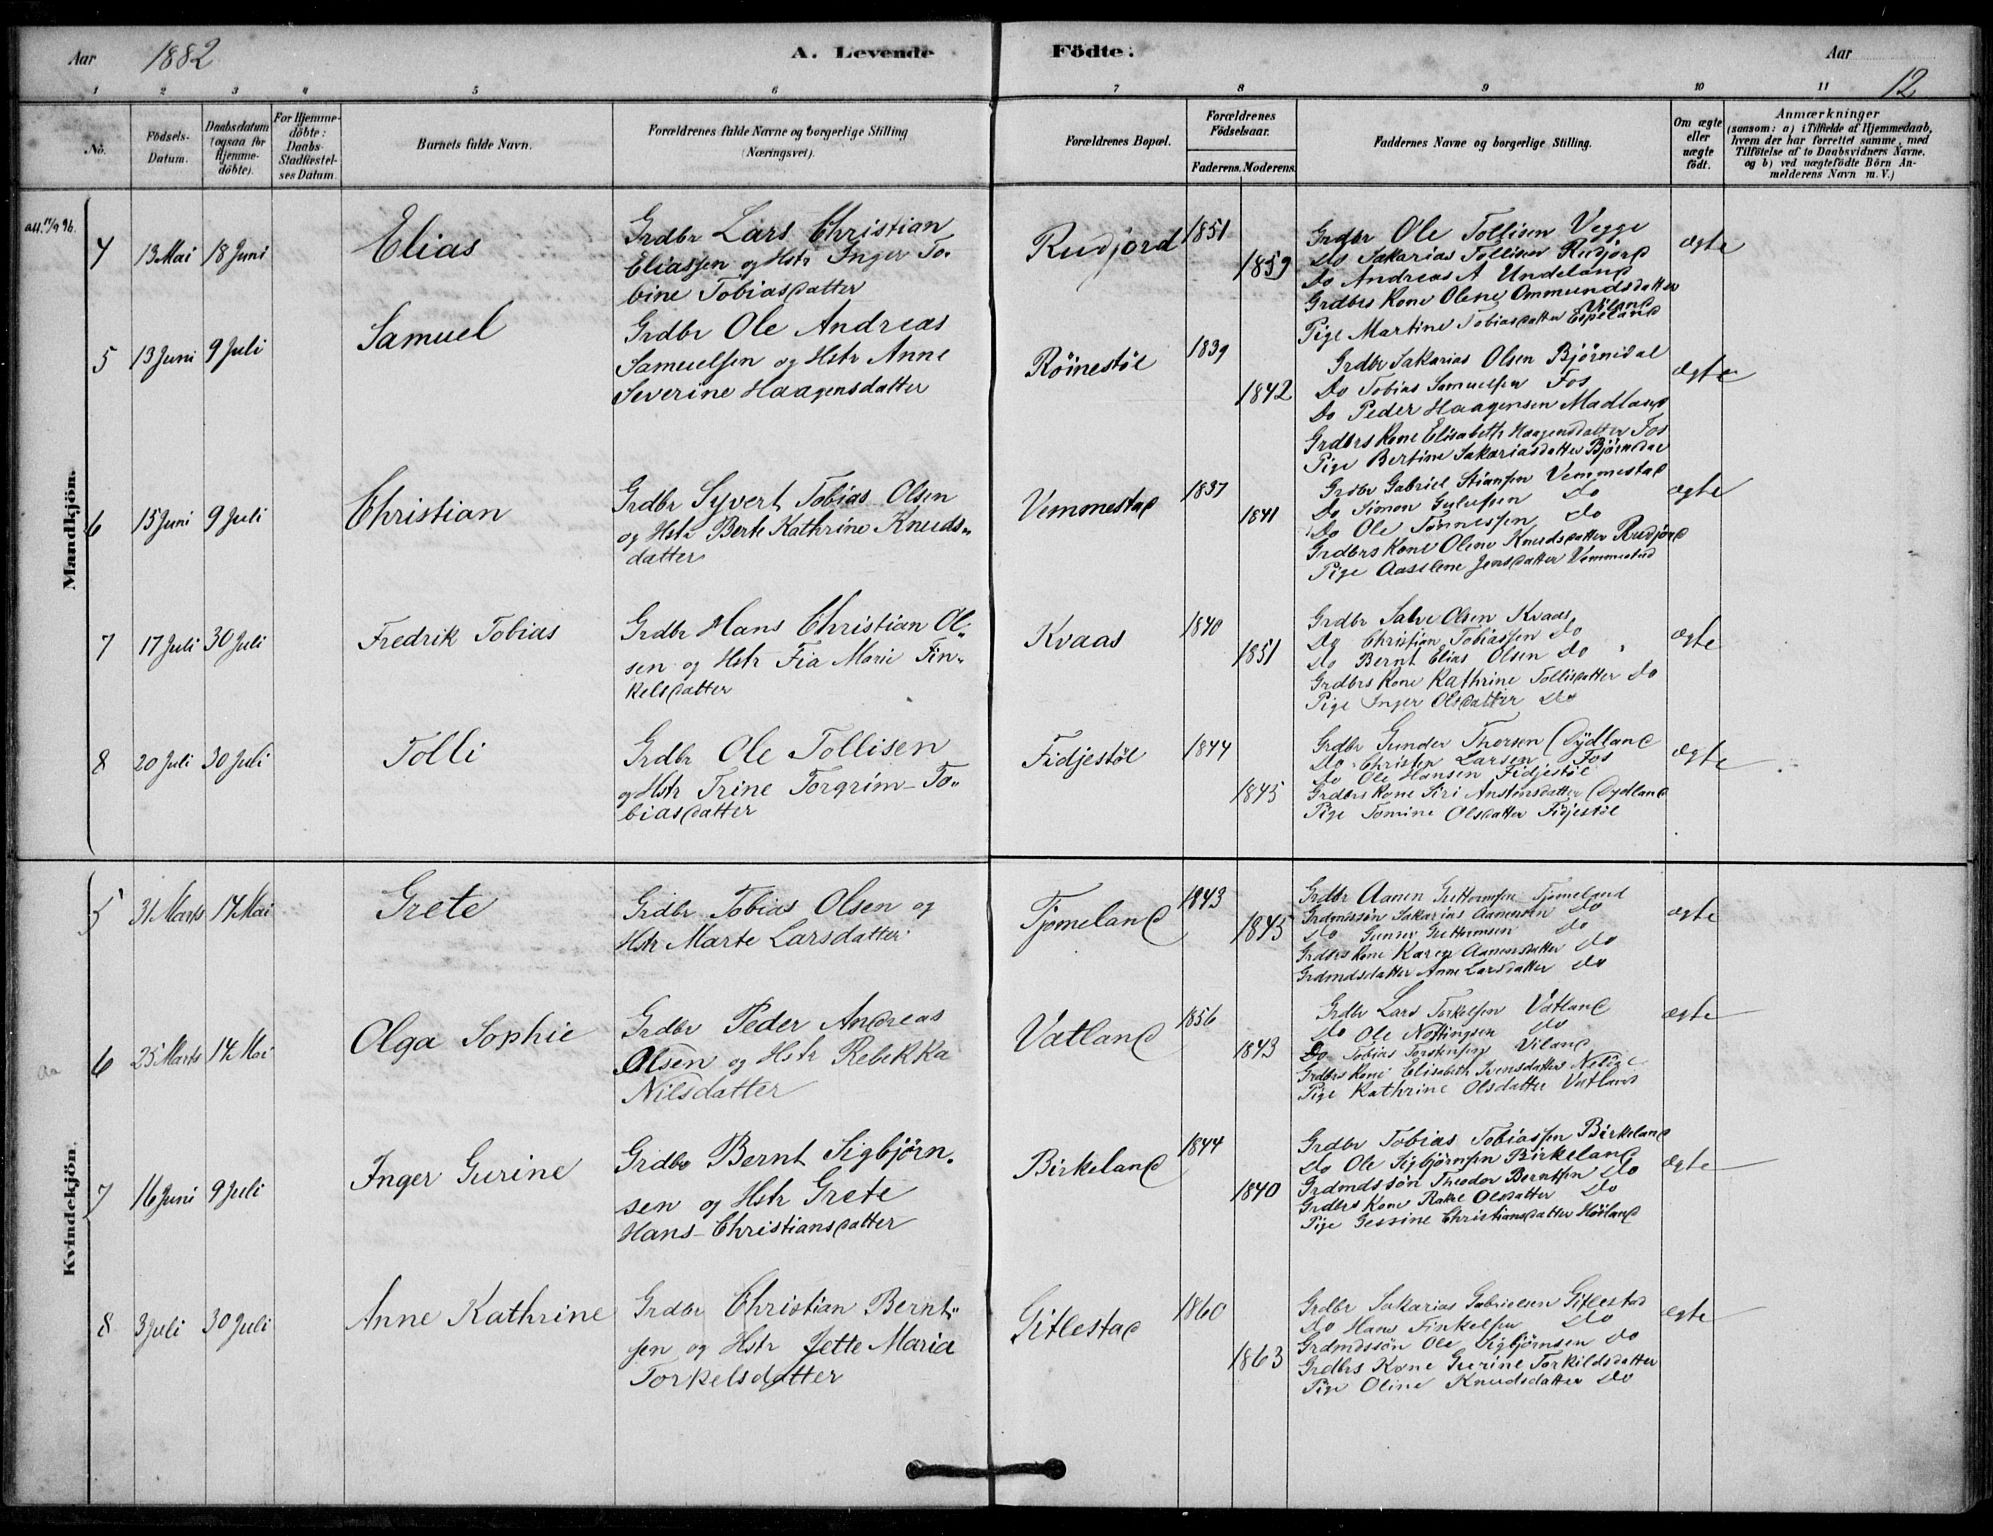 Aar 1882 A. Levende Födte. Aar 12
1 2 3 4 5 6 7 8 9 10 11
No.
Födsels-Datum.
Daabsdatum (ogsaa for Hjemme-döbte).
For Hjemme-döbte: Daabs-Stadfæstel-ses Datum.
Barnets fulde Navn.
Forældrenes fulde Navne og borgerlige Stilling (Næringsvei).
Forældrenes Bopæl.
Forældrenes Födselsaar.
Faderens. Moderens.
Faddernes Navne og borgerlige Stilling.
Om ægte eller uægte födt.
Anmærkninger
(saasom: a) i Tilfælde af Hjemmedaab,
hvem der har forrettet samme, med
Tilföielse af to Daabsvidners Navne.
og b) ved uægtefödte Börn An-
melderens Navn m. V.)
Mandkjön.
att. 11/9 96.
4 13 Mai 18 Juni Elias
Grdbr Lars Christian
Eliassen og Hstr Inger To-
bine Tobiasdatter
Rudjord 1851 1859
Grdbr Ole Tollisen Vegge
Do Sakarias Tollisen Rudjord
Do Andreas A Undeland
Grdbrs Kone Olene Ommundsdatter
Viland
Pige Martine Tobiasdatter Espeland
ægte
5 13 Juni 9 Juli Samuel
Grdbr Ole Andreas
Samuelsen og Hstr Anne
Severine Haagensdatter
Röinestöl 1839 1842
Grdbr Sakarias Olsen Bjørnidal
Do Tobias Samuelsen Fos
Do Peder Haagensen Madland
Grdbrs Kone Elisabeth Haagensdatter Fos
Pige Bertine Sakariasdatter Bjørnedal
ægte
6 15 Juni 9 Juli Christian
Grdbr Syvert Tobias Olsen
og Hstr Berte Kathrine Knuds-
datter
Vemmestad 1837 1841
Grdbr Gabriel Stiansen Vemmestad
Do Simon do
Do Ole Tønnessen do
Grdbrs Kone Olene Knudsdatter Rudjord
Pige Aaselene Jensdatter Vemmestad
ægte
7 17 Juli 30 Juli Fredrik Tobias
Grdbr Hans Christian Ol-
sen og Hstr Fia Marie Fin-
kelsdatter
Kvaas 1840 1851
Grdbr Salve Olsen Kvaas
Do Christian Tobiassen do
Do Bernt Elias Olsen do
Grdbrs Kone Kathrine Tollisdatter do
Pige Inger Olsdatter do
ægte
8 20 Juli 30 Juli Tolli
Grdbr Ole Tollisen
og Hstr Trine Torgrim-To-
biasdatter
Fidjestöl 1844 1845
Grdbr Gunder Thorsen Dydland
Do Christen Larsen Fos
Do Ole Hansen Fidjestöl
Grdbrs Kone Siri Anstensdatter Dydland
Pige Tomine Olsdatter Fidjestöl
ægte
Kvindekjön.
5 31 Marts 14 Mai Grete
Grdbr Tobias Olsen og
Hstr Marte Larsdatter
Tjomeland 1843 1845
Grdbr Aanen Guttormsen Tjomeland
Grdmdssön Sakarias Aanensen do
Do Gunder Guttormsen do
Grdbrs Kone Karen Aanensdatter do
Grdmdsdatter Anne Larsdatter do
ægte
6 25 Marts 14 Mai Olga Sophie
Grdbr Peder Andreas
Olsen og Hstr Rebekka
Nilsdatter
Vatland 1856 1843
Grdbr Lars Torkelsen Vatland
Do Ole do
Do Tobias Torstensen Viland
Grdbrs Kone Elisabeth
Pige Kathrine Olsdatter Vatland
ægte
7 16 Juni 9 Juli Inger Gurine
Grdbr Bernt Sigbjørn-
sen og Hstr Grete
Hans-Christiansdatter
Birkeland 1844 1840
Grdbr Tobias Tobiassen Birkeland
Do Ole Sigbjørnsen Birkeland
Grdmdssön Theodor Berntsen do
Grdbrs Kone Rakel Olsdatter do
Pige Gessine Christiansdatter Høiland
ægte
8 3 Juli 30 Juli Anne Kathrine
Grdbr Christian Bernt-
sen og Hstr Jette Maria
Torkelsdatter
Gitlestad 1860 1863
Grdbr Sakarias Gabrielsen Gitlestad
Do Hans Finkelsen do
Grdmdssön Ole Sigbjørnsen do
Grdbrs Kone Gurine Torkildsdatter
Pige Oline Knudsdatter do
ægte